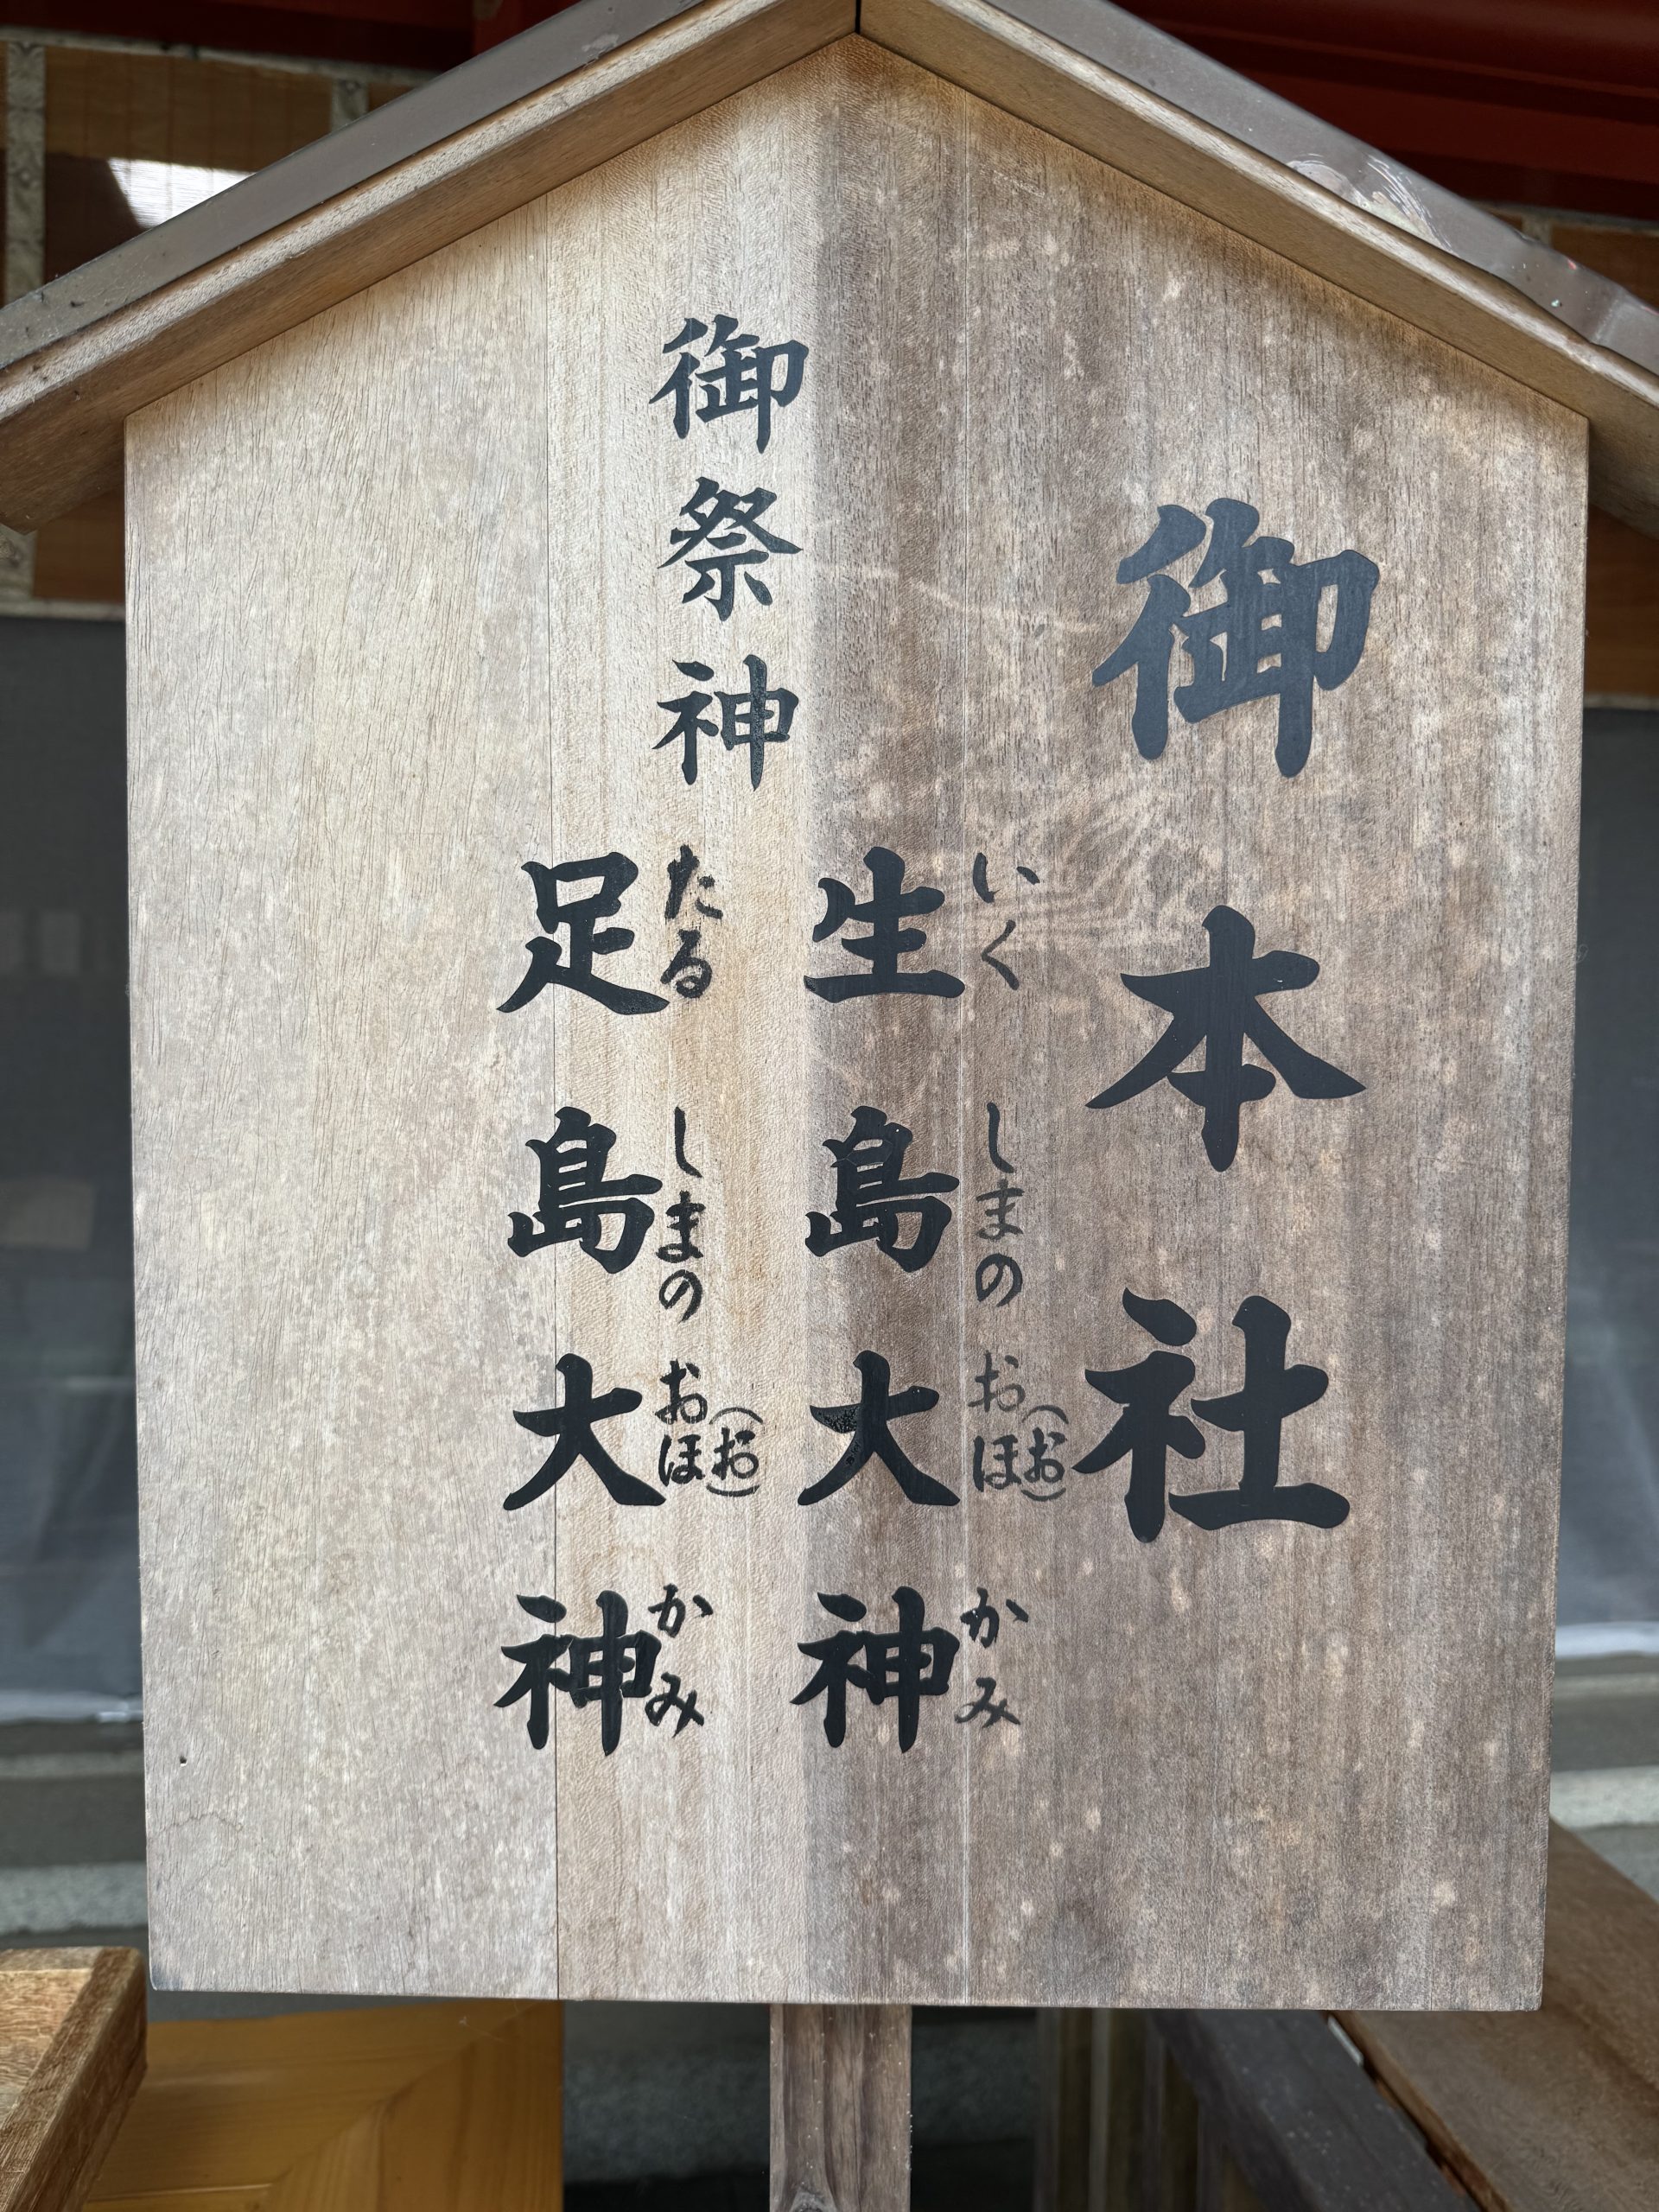 御本社
御祭神
生島大神
いくしまのおほ(お)かみ
足島大神
たるしまのおほ(お)かみ